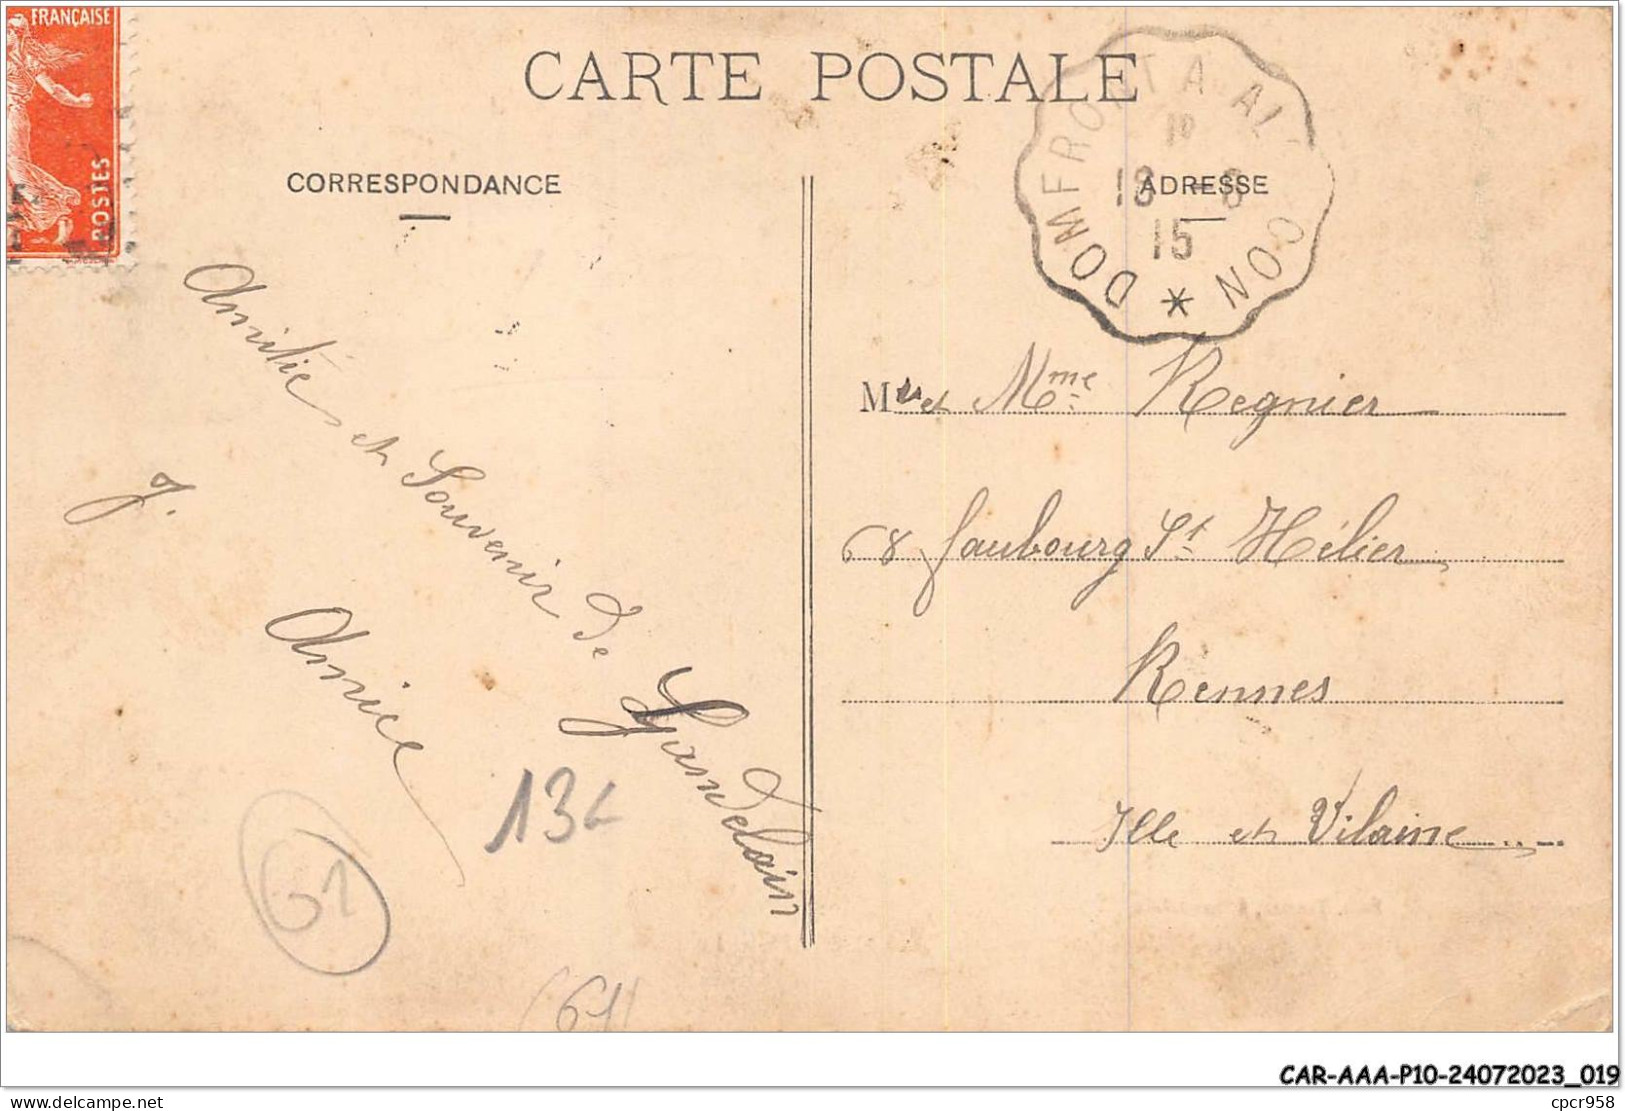 FRANÇAISE
POSTES
CARTE POSTALE
DOMFRONT A AL ÇON
1º
18 -8
15
CORRESPONDANCE
ADRESSE
Amitié et Souvenir de Landelain
J. Amice
M et Mme Regnier
68 faubourg St Hélier
Rennes
Ille et Vilaine
13 €
61
(61)
CAR-AAA-P10-24072023_019
cpcr958